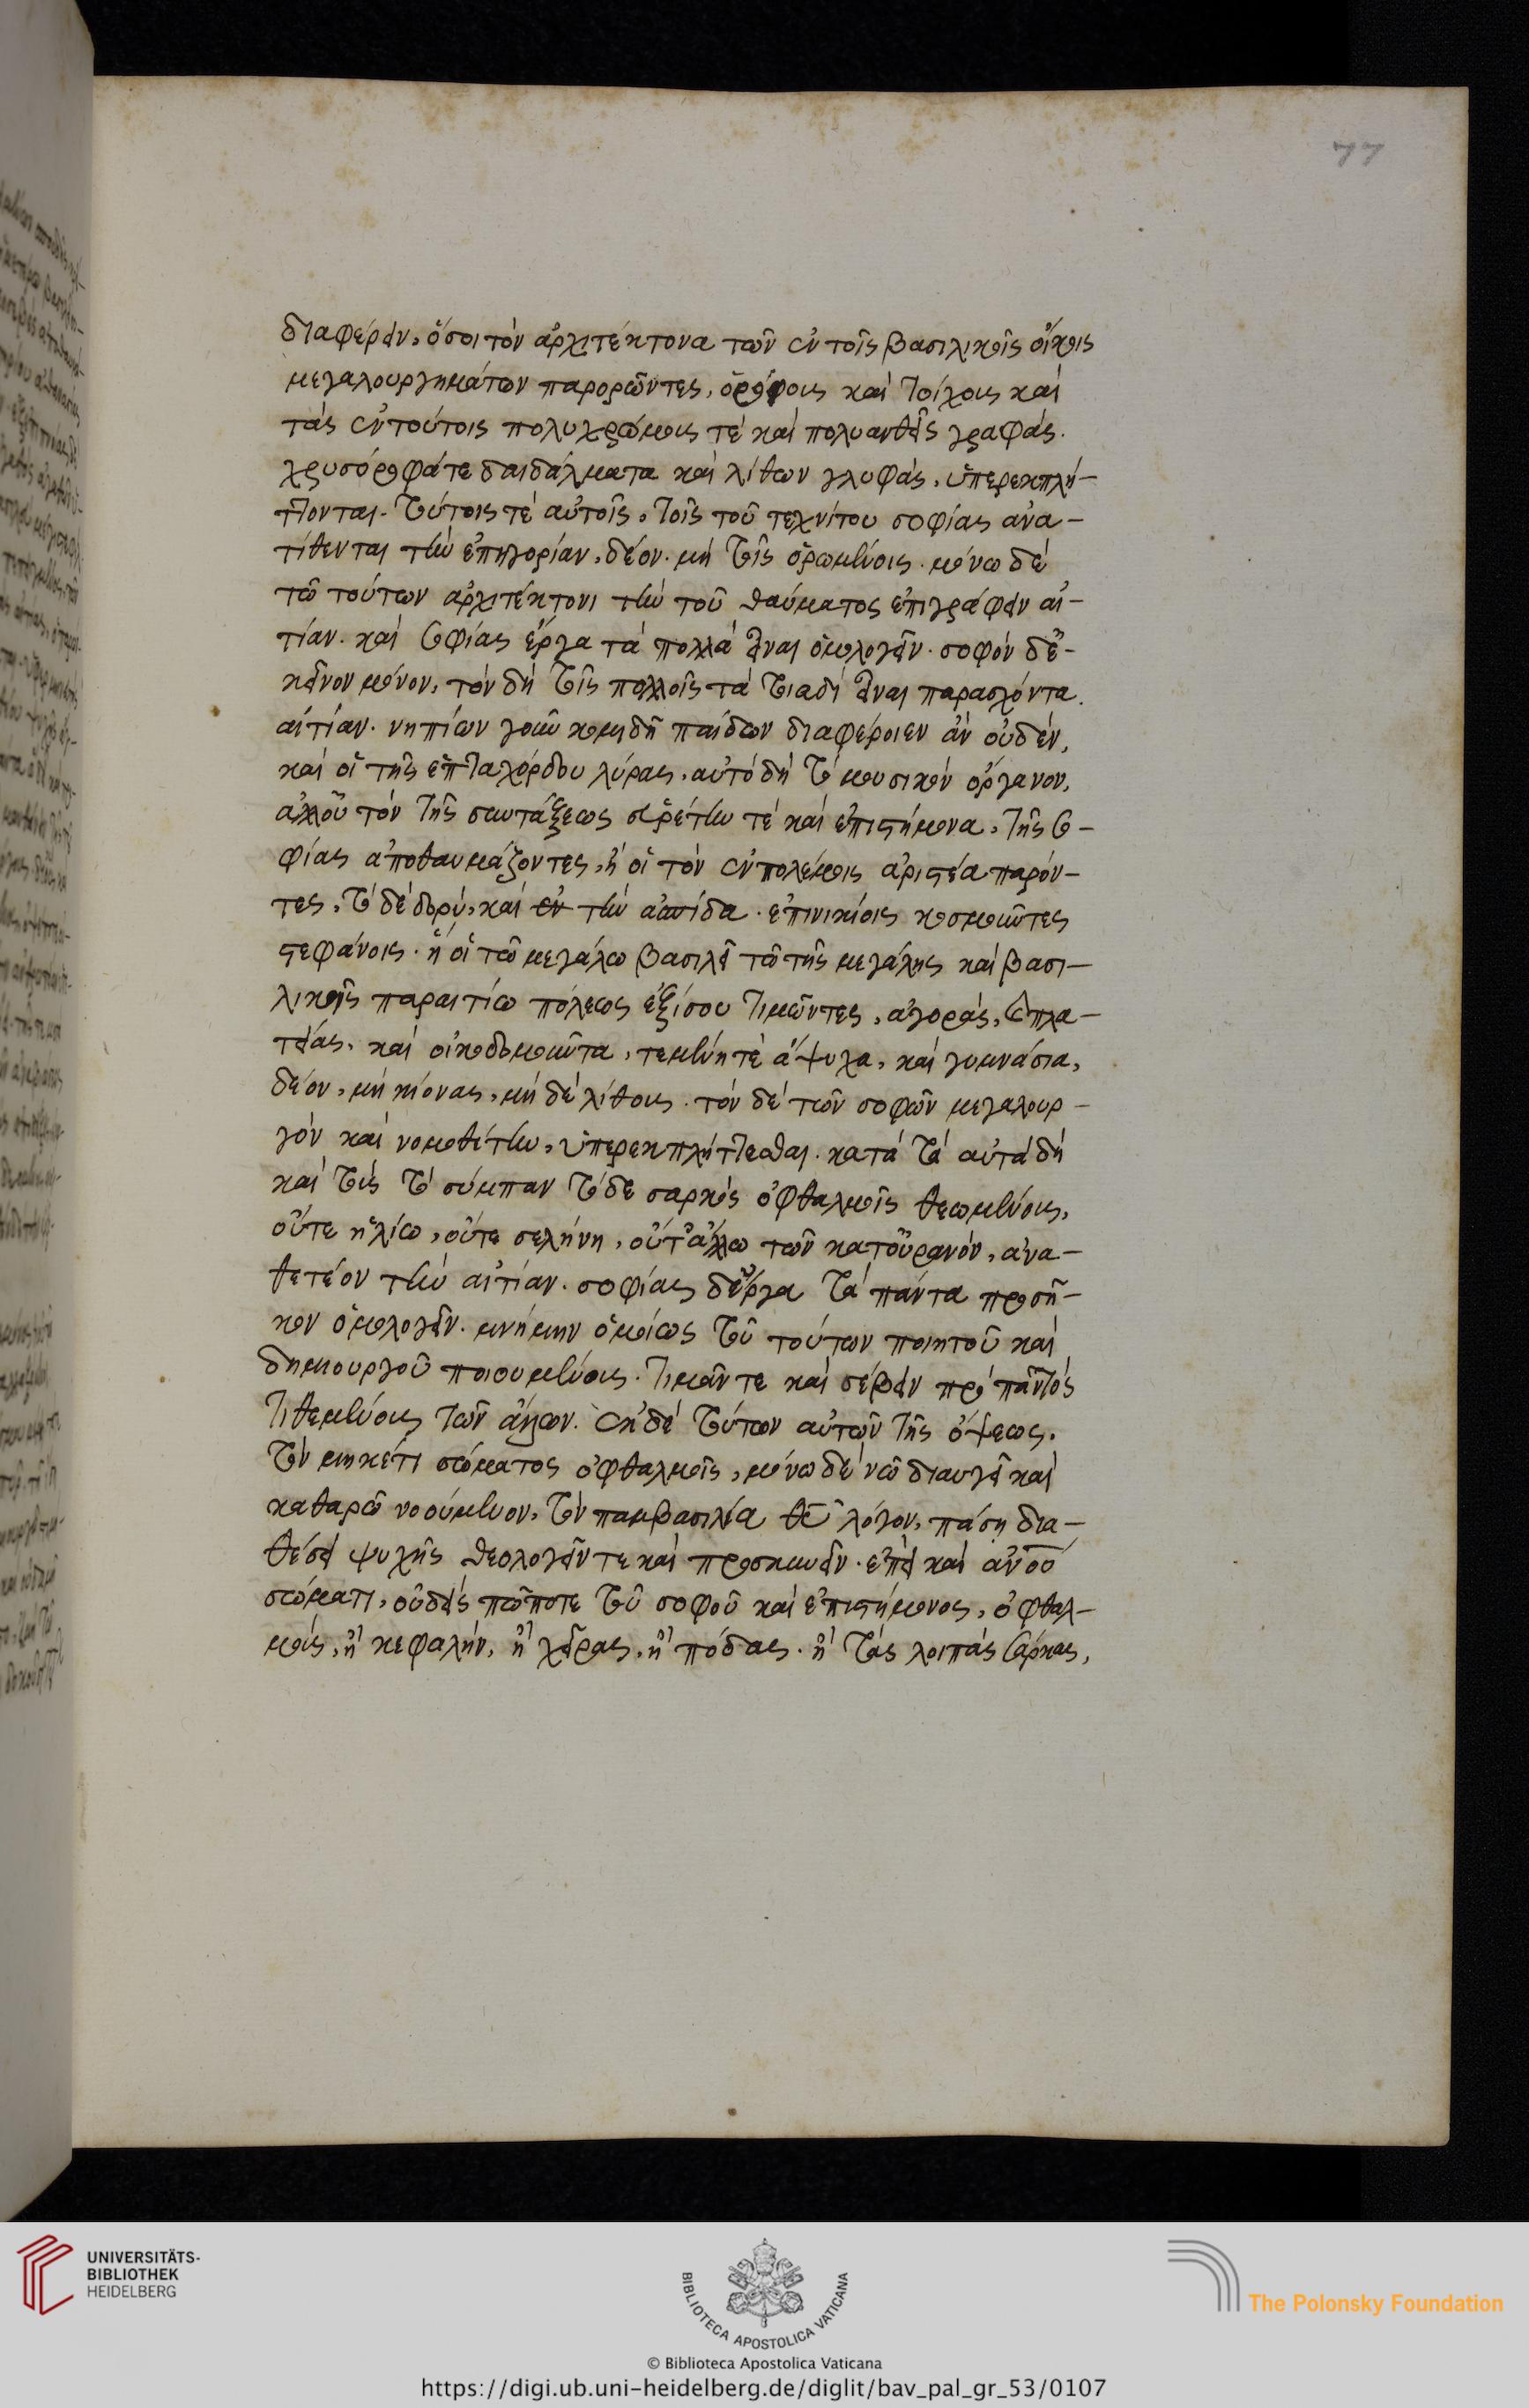 77
διαφέρειν, ὅσοι τὸν ἀρχιτέκτονα τῶν ἐν τοῖς βασιλικοῖς οἴκοις
μεγαλουργημάτων παρορῶντες, ὀρόφους καὶ τοίχους καὶ
τὰς ἐν τούτοις πολυχρώμους τὲ καὶ πολυανθεῖς γραφάς.
χρυσόροφά τε δαιδάλματα καὶ λίθων γλυφὰς, ὑπερεκπλή-
ττονται. τούτοις τὲ αὐτοῖς, τοῖς τοῦ τεχνίτου σοφίας ἀνα-
τίθενται τὴν ἐπηγορίαν, δέον. μὴ τοῖς ὁρωμένοις. μόνω δὲ
τῶ τούτων ἀρχιτέκτονι τὴν τοῦ θαύματος ἐπιγράφειν αἰ-
τίαν. καὶ σοφίας ἔργα τὰ πολλὰ εἶναι ὁμολογεῖν. σοφὸν δὲ ἐ-
κεῖνον μόνον, τὸν δὴ τοῖς πολλοῖς τὰ τοιαδὶ εἶναι παρασχόντα.
αἰτίαν. νηπίων γοῦν κομιδῆ παίδων διαφέροιεν ἂν οὐδὲν,
καὶ οἱ τῆς ἑπταχόρδου λύρας, αὐτὸ δὴ τὸ μουσικὸν ὄργανον,
ἀλλ' οὐ τὸν τῆς συντάξεως εὑρέτην τὲ καὶ ἐπιστήμονα, τῆς σο-
φίας ἀποθαυμάζοντες, ἢ οἱ τὸν ἐν πολέμοις ἀριστέα παρόν-
τες, τὸ δὲ δόρυ, καὶ ἐν τὴν ἀσπίδα. ἐπινικίοις κοσμοῦντες
στεφάνοις. ἢ οἱ τῶ μεγάλω βασιλεῖ τῶ τῆς μεγάλης καὶ βασι-
λικῆς παραιτίω πόλεως ἐξίσου τιμῶντες, ἀγορὰς, καὶ πλα-
τείας, καὶ οἰκοδομοῦντα, τεμένη τὲ ἄψυχα, καὶ γυμνάσια,
δέον, μὴ κίονας, μὴ δὲ λίθους. τὸν δὲ τῶν σοφῶν μεγαλουρ-
γὸν καὶ νομοθέτην, ὑπερεκπλήττεσθαι. κατὰ τὰ αὐτὰ δὴ
καὶ τοὺς τὸ σύμπαν τόδε σαρκὸς ὀφθαλμοῖς θεωμένους,
οὔτε ἡλίω, οὔτε σελήνη, οὔτ' ἄλλω τῶν κατ' οὐρανὸν, ἀνα-
θετέον τὴν αἰτίαν. σοφίας δ' ἔργα τὰ πάντα προσῆ-
κον ὁμολογεῖν. μνήμην ὁμοίως τοῦ τούτων ποιητοῦ καὶ
δημιουργοῦ ποιουμένους. τιμᾶν τε καὶ σέβειν πρὸ παντὸς
τιθεμένους τῶν ἄλλων. ἐκ δὲ τούτων αὐτῶν τῆς ὄψεως.
τὸν μηκέτι σώματος ὀφθαλμοῖς, μόνω δὲ νῶ διαυγεῖ καὶ
καθαρῶ νοούμενον, τὸν παμβασιλέα θυ λόγον, πάση δια-
θέσει ψυχῆς θεολογεῖν τε καὶ προσκυνεῖν. ἐπεὶ καὶ ανου
σώματι, οὐδεὶς πώποτε τοῦ σοφοῦ καὶ ἐπιστήμονος, ὀφθαλ-
μοὺς, ἢ κεφαλὴν, ἢ χεῖρας, ἢ πόδας. ἢ τὰς λοιπὰς σάρκας,
UNIVERSITÄTS-
BIBLIOTHEK
HEIDELBERG
BIBLIOTECA APOSTOLICA VATICANA
The Polonsky Foundation
© Biblioteca Apostolica Vaticana
https://digi.ub.uni-heidelberg.de/diglit/bav_pal_gr_53/0107